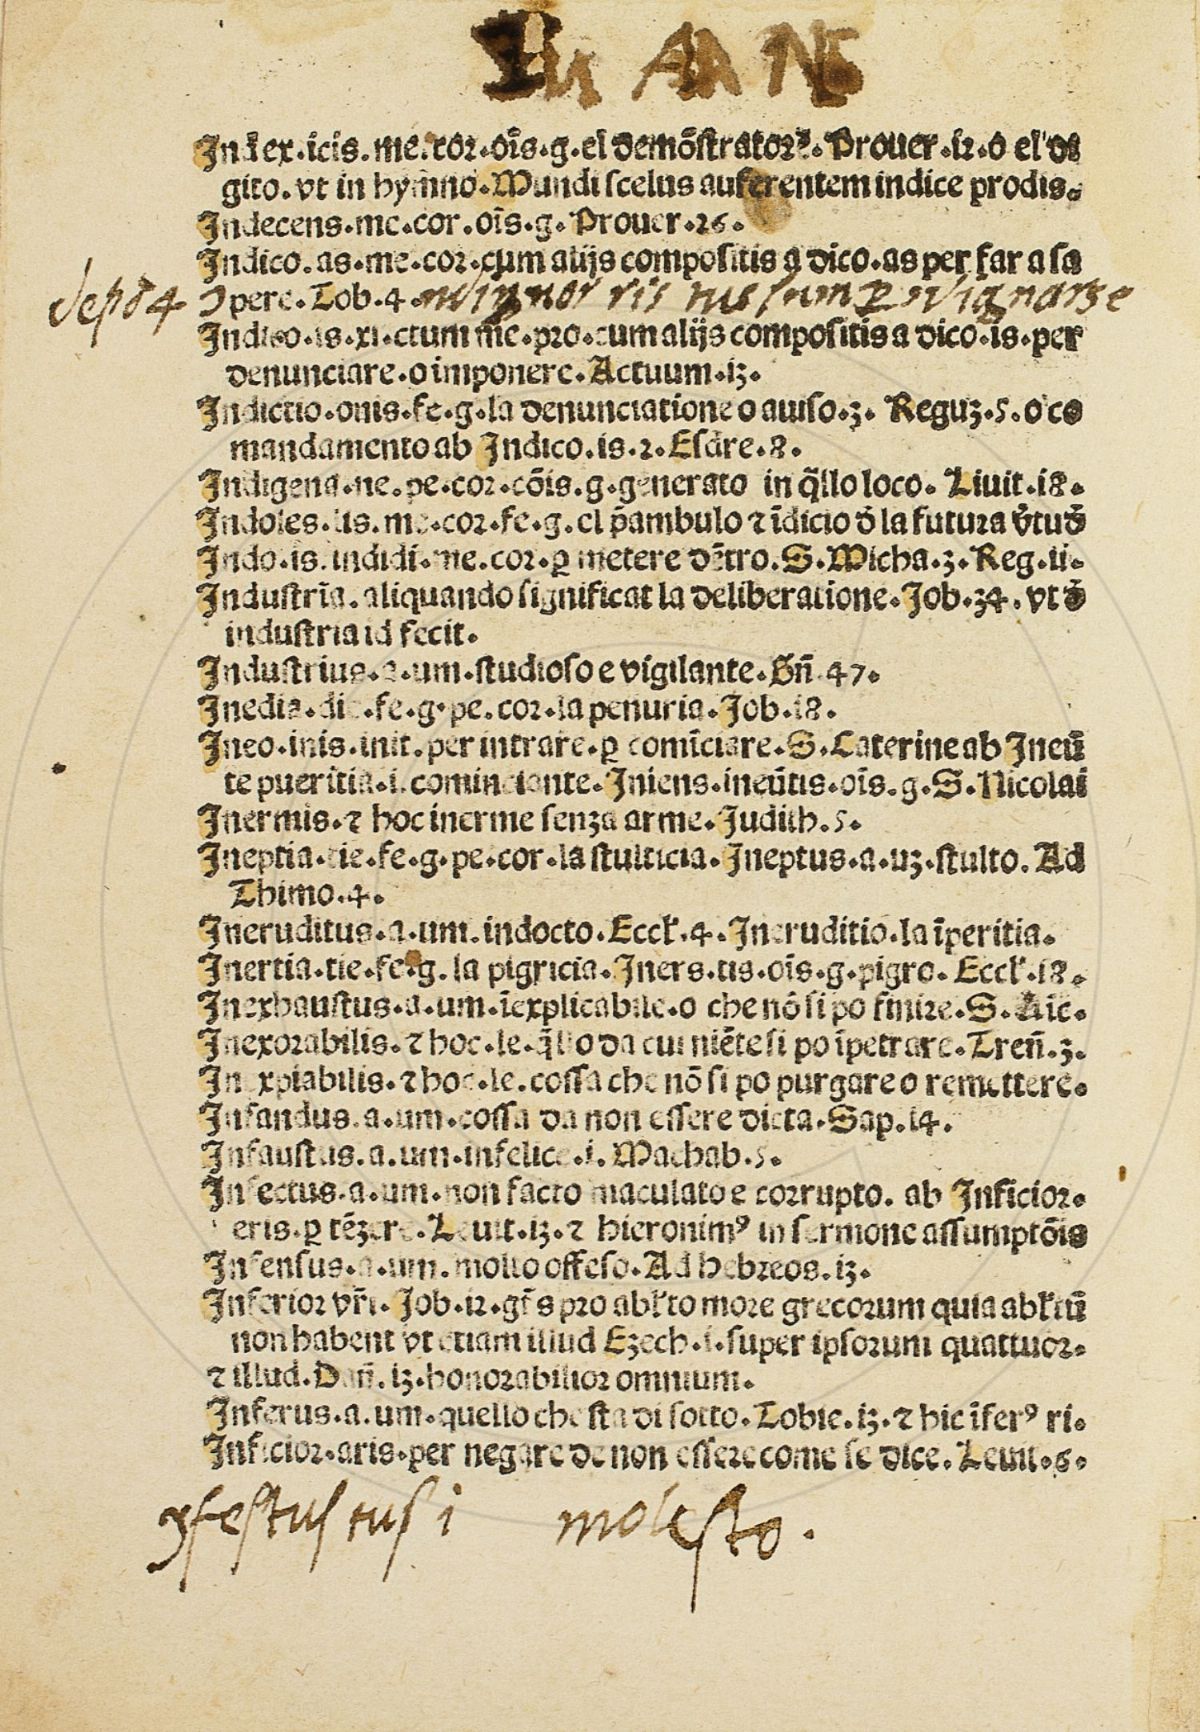 Index.icis.me.cor.oīs.g.el demōstratore.Prouer.iz.o el di
gito.vt in hymno.Mundi scelus auferentem indice prodis.
Indecens.me.cor.oīs.g.Prouer.26.
Indico.as.me.cor.cum alijs compositis a dico.as per far a sa
pere.Tob.4.
Indico.is.xi.ctum me.pro.cum alijs compositis a dico.is.per
denunciare.o imponere.Actuum.iz.
Indictio.onis.fe.g.la denunciatione o auiso.3.Reguz.5.o co
mandamento ab Indico.is.2.Esdre.8.
Indigena.ne.pe.cor.cōis.g.generato in q̄llo loco.Liuit.18.
Indoles.lis.me.cor.fe.g.el p̄ambulo ⁊ īdicio d̄ la futura v̄tud̄
Indo.is.indidi.me.cor.ꝑ metere dētro.S.Micha.3.Reg.ii.
Industria.aliquando significat la deliberatione.Job.34.vt d̄
industria id fecit.
Industrius.a.um.studioso e vigilante.Gn̄.47.
Inedia.die.fe.g.pe.cor.la penuria.Job.18.
Ineo.inis.init.per intrare.ꝑ comīciare.S.Caterine ab Ineū
te pueritia.i.cominciante.Iniens.ineūtis.oīs.g.S.Nicolai
Inermis.⁊ hoc inerme senza arme.Judith.5.
Ineptia.tie.fe.g.pe.cor.la stulticia.Ineptus.a.uz.stulto.Ad
Thimo.4.
Ineruditus.a.um.indocto.Eccl'.4.Ineruditio.la īperitia.
Inertia.tie.fe.g.la pigricia.Iners.tis.oīs.g.pigro.Eccl'.18.
Inexhaustus.a.um.īexplicabile.o che nō si po finire.S.Nic.
Inexorabilis.⁊ hoc.le.q̄llo da cui niēte si po īpetrare.Tren̄.3.
Inexpiabilis.⁊ hoc.le.cossa che nō si po purgare o remettere.
Infandus.a.um.cossa da non essere dicta.Sap.14.
Infaustus.a.um.infelice.i.Machab.5.
Infectus.a.um.non facto maculato e corrupto.ab Inficior.
eris.ꝑ tēzere.Leuit.iz.⁊ hieronimꝰ in sermone assumptōis
Infensus.a.um.molto offeso.Ad hebreos.iz.
Inferior vr̄i.Job.iz.gt̄s pro abl'to more grecorum quia abl'tū
non habent vt etiam illud Ezech.i.super ipsorum quattuor.
⁊ illud.Dan̄.iz.honorabilior omnium.
Inferus.a.um.quello che sta di sotto.Tobie.iz.⁊ hic īferꝰ ri.
Inficior.aris.per negare de non essere come se dice.Leuit.6.
molesto.